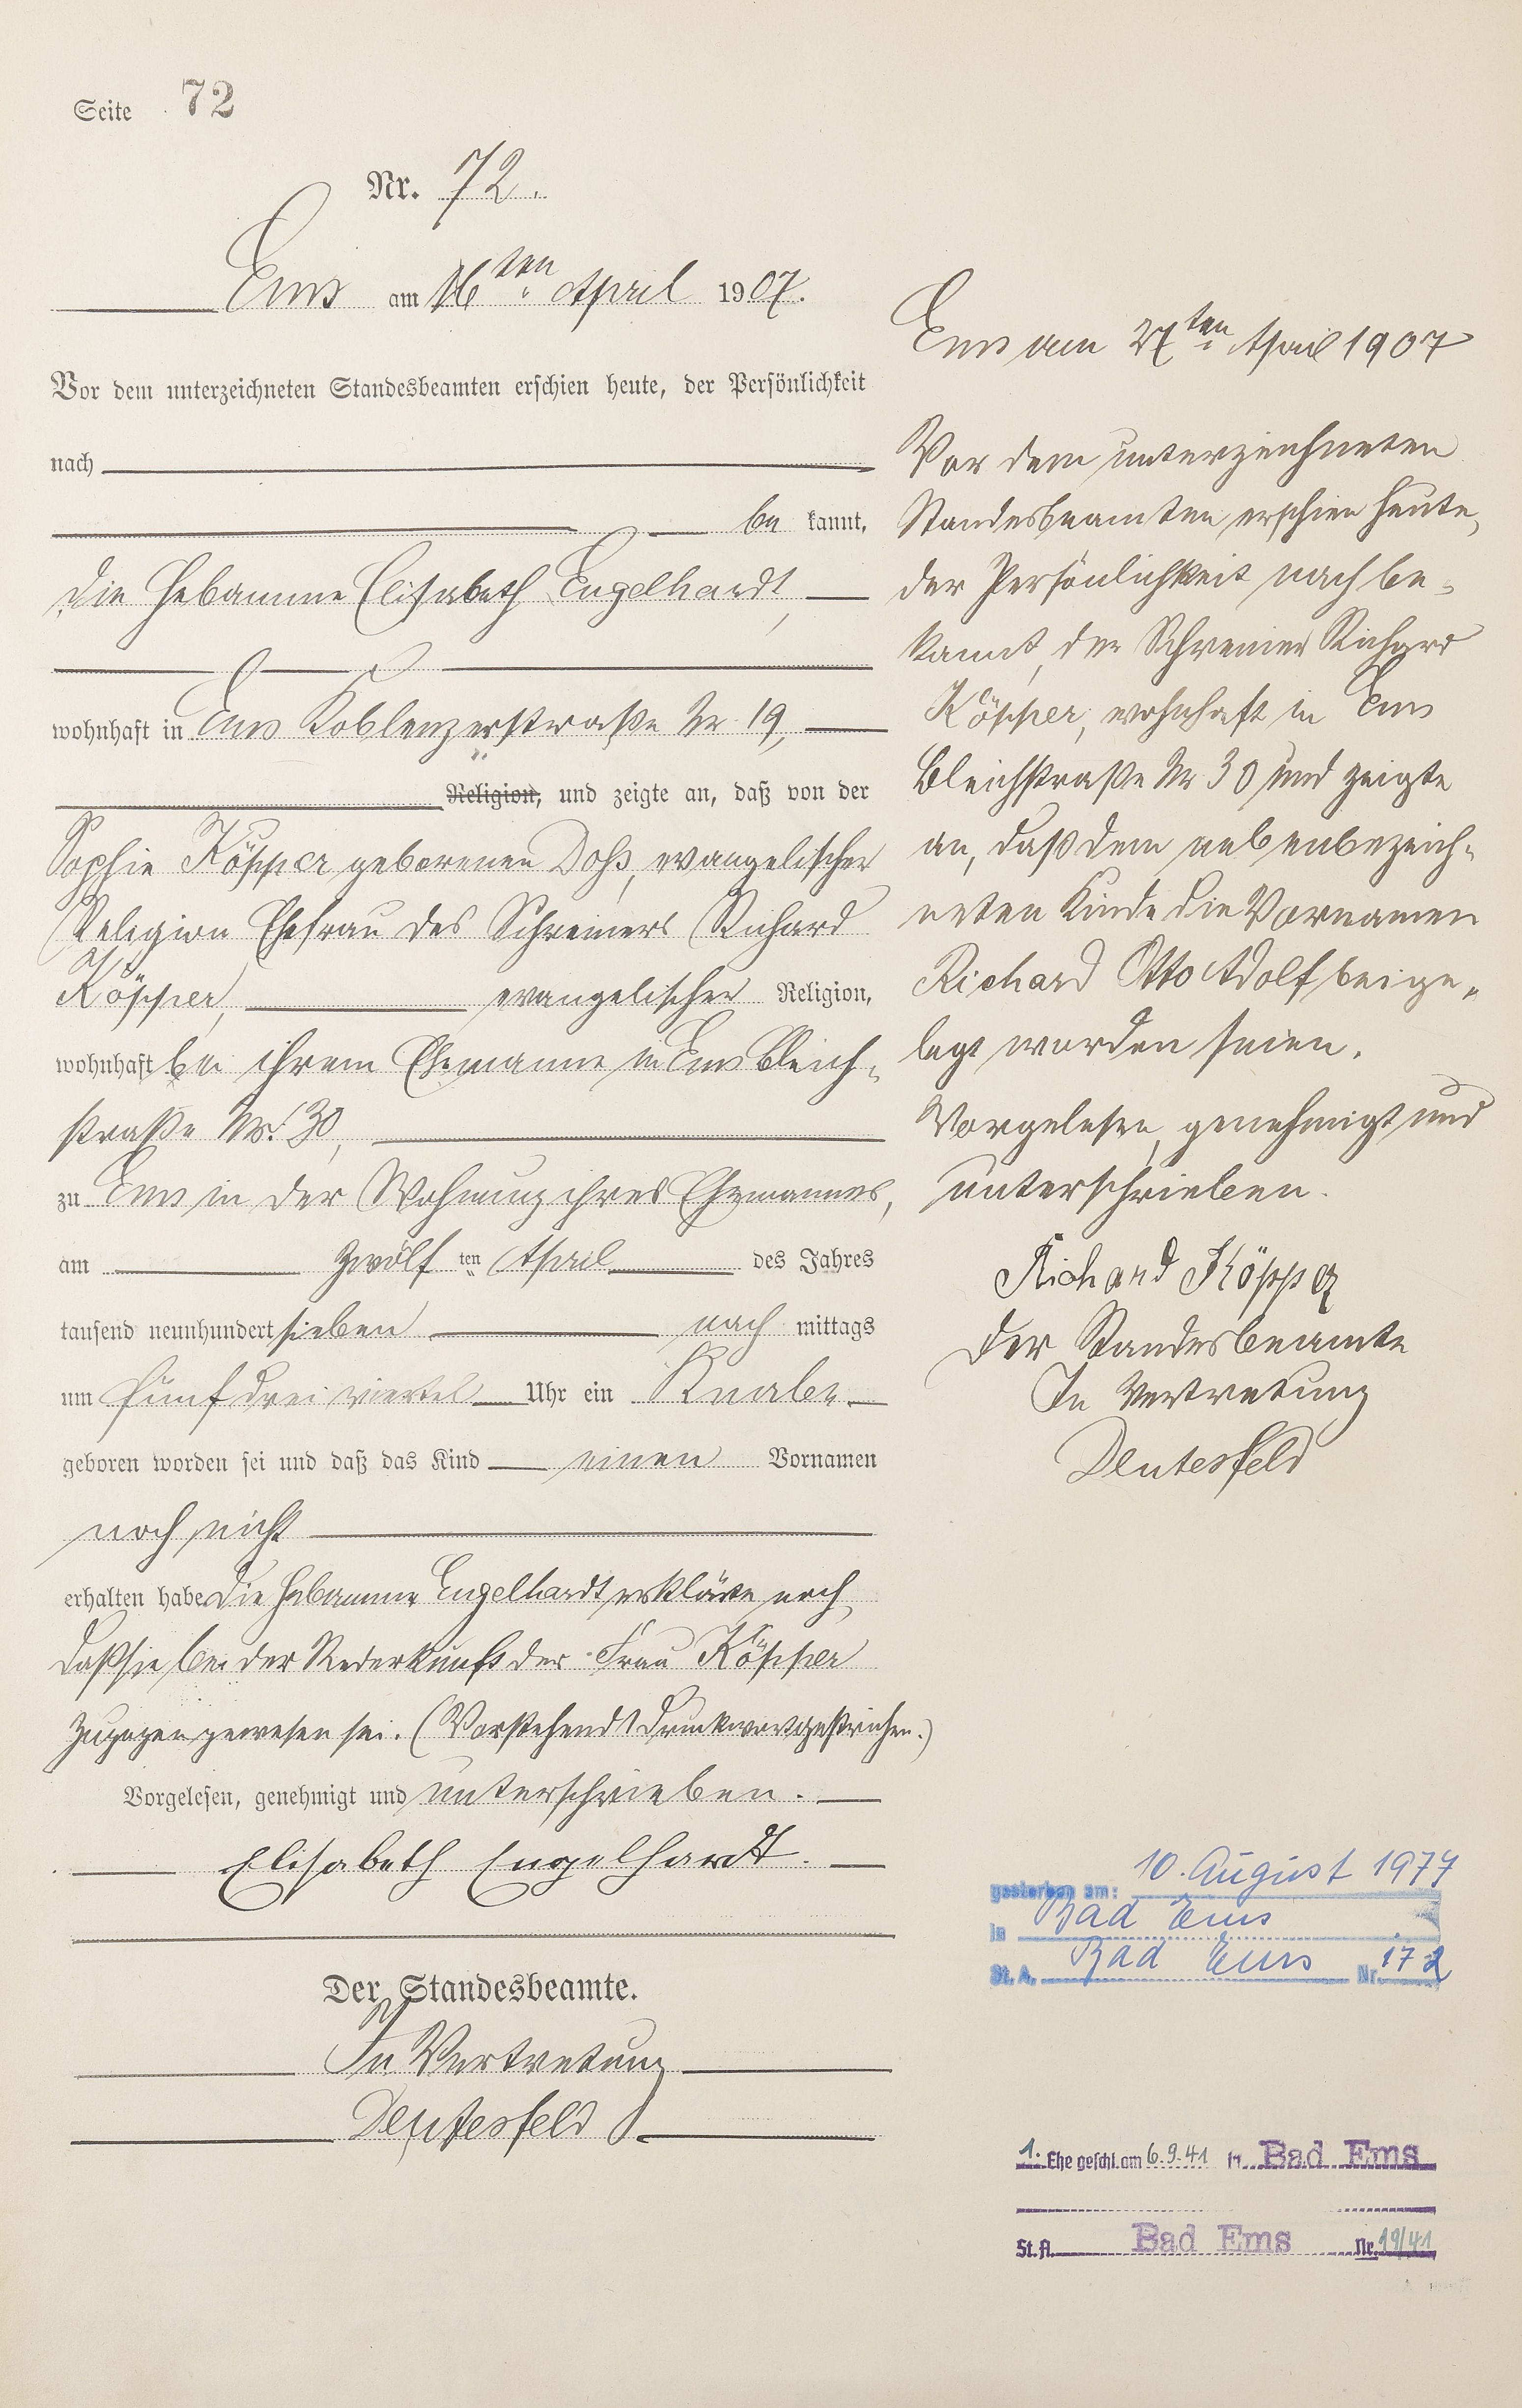 Seite 72
Nr. 72.
Ems am 16ten April 1907.
Vor dem unterzeichneten Standesbeamten erschien heute, der Persönlichkeit
nach
be kannt,
die Hebamme Elisabeth Engelhardt,
wohnhaft in Ems Koblenzerstraße Nr. 19,
Religion, und zeigte an, daß von der
Sophie Köpper geborenen Doß, evangelischer
Religion Ehefrau des Schreiners Richard
Köpper, evangelischer Religion,
wohnhaft bei ihrem Ehemanne in Ems Bleich-
straße Nr. 30,
zu Ems in der Wohnung ihres Ehemannes,
am zwölf ten April des Jahres
tausend neunhundert sieben nach mittags
um fünf drei viertel Uhr ein Knabe
geboren worden sei und daß das Kind einen Vornamen
noch nicht
erhalten habe. Die Hebamme Engelhardt erklärte noch
daß sie bei der Niederkunft der Frau Köpper
zugegen gewesen sei. (Vorstehend 1 Druckwort gestrichen.)
Vorgelesen, genehmigt und unterschrieben.
Elisabeth Engelhardt.
Der Standesbeamte.
In Vertretung
Deutesfeld
Ems am 27ten April 1907
Vor dem unterzeichneten
Standesbeamten erschien heute,
der Persönlichkeit nach be-
kannt, der Schreiner Richard
Köpper, wohnhaft in Ems
Bleichstraße Nr 30 und zeigte
an, daß dem nebenbezeich-
neten Kinde die Vornamen
Richard Otto Adolf beige-
legt worden seien.
Vorgelesen, genehmigt und
unterschrieben.
Richard Köpper
Der Standesbeamte
In Vertretung
Deutesfeld
gestorben am: 10. August 1977
in Bad Ems
St. A. Bad Ems Nr. 172
1. Ehe geschl. am 6.9.41 in Bad Ems
St. A. Bad Ems Nr. 19/41